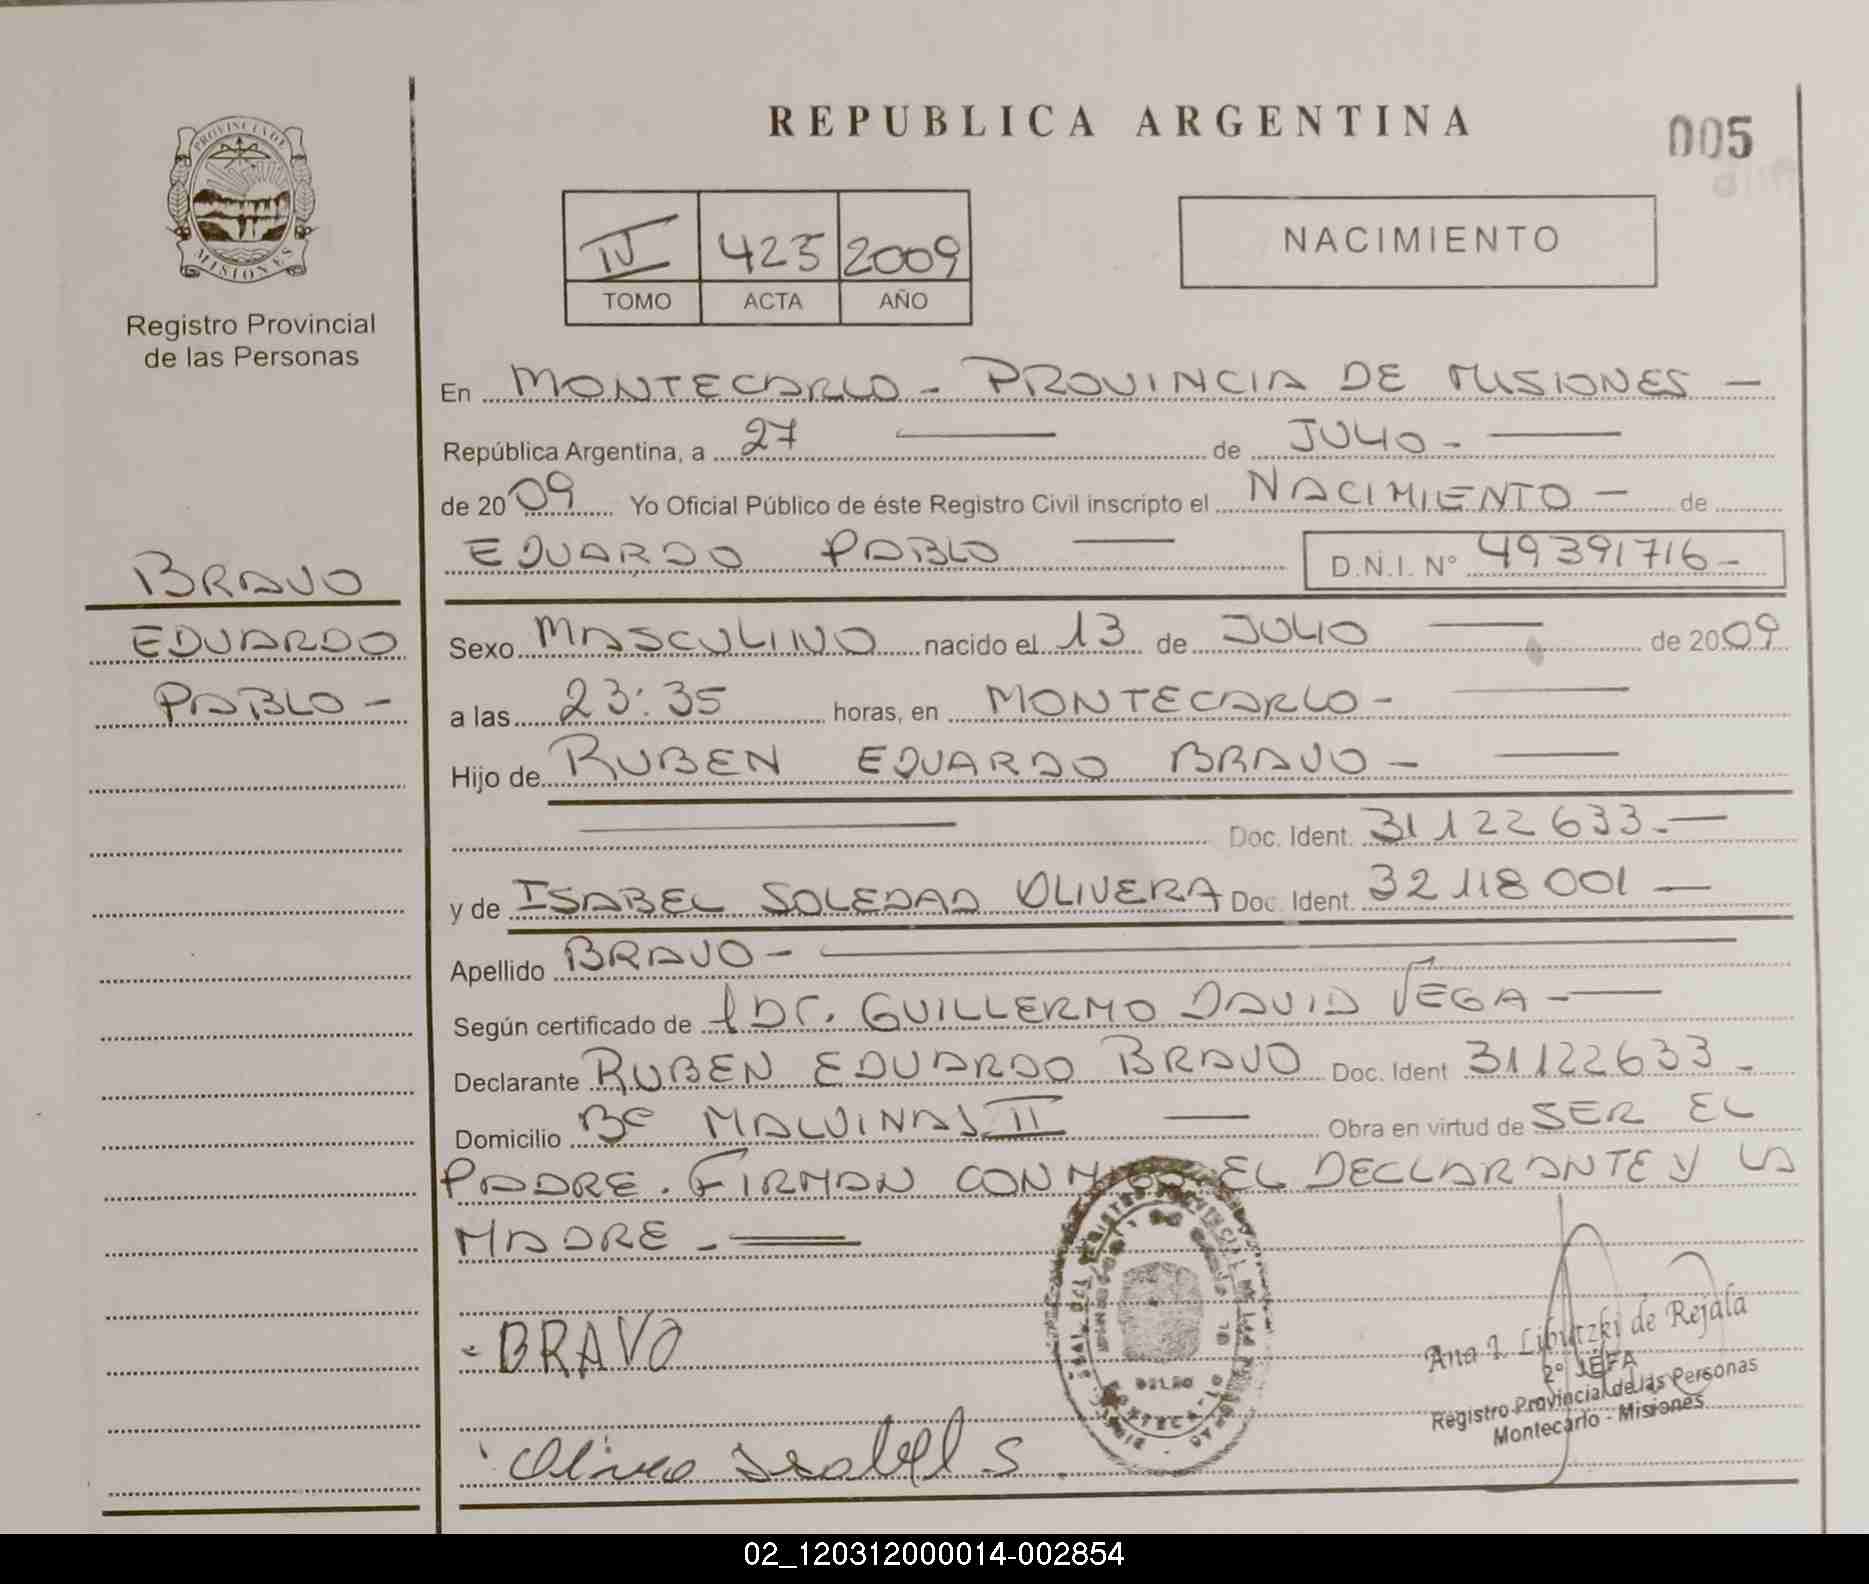 REPUBLICA ARGENTINA
005
PROVINCIA DE
MISIONES
Registro Provincial
de las Personas
IV 425 2009
TOMO ACTA AÑO
NACIMIENTO
En MONTECARLO - PROVINCIA DE MISIONES -
República Argentina, a 27 de JULIO -
de 2009 Yo Oficial Público de éste Registro Civil inscripto el NACIMIENTO - de
EDUARDO PABLO D.N.I. N° 49391716-
BRAVO
EDUARDO
PABLO -
Sexo MASCULINO nacido el 13 de JULIO de 2009
a las 23:35 horas, en MONTECARLO -
Hijo de RUBEN EDUARDO BRAVO -
Doc. Ident. 31122633.-
y de ISABEL SOLEDAD OLIVERA Doc. Ident. 32118001 -
Apellido BRAVO -
Según certificado de DR. GUILLERMO DAVID VEGA -
Declarante RUBEN EDUARDO BRAVO Doc. Ident 31122633 -
Domicilio Bº MALVINAS II Obra en virtud de SER EL
PADRE. FIRMAN CONMIGO EL DECLARANTE Y LA
MADRE -
BRAVO
Isabel S.
Ana I. Libutzki de Rejala
2° JEFA
Registro Provincial de las Personas
Montecarlo - Misiones
02_120312000014-002854